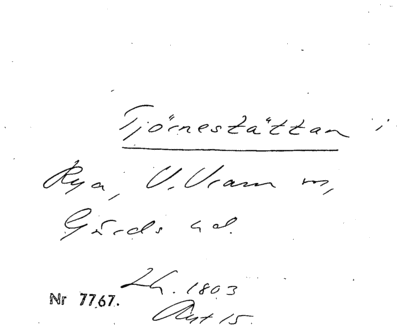 Tjörnestättan i
Rya, V. Vram m,
Gärds hd.
Lh. 1803
Nr 7767.
Akt 15.